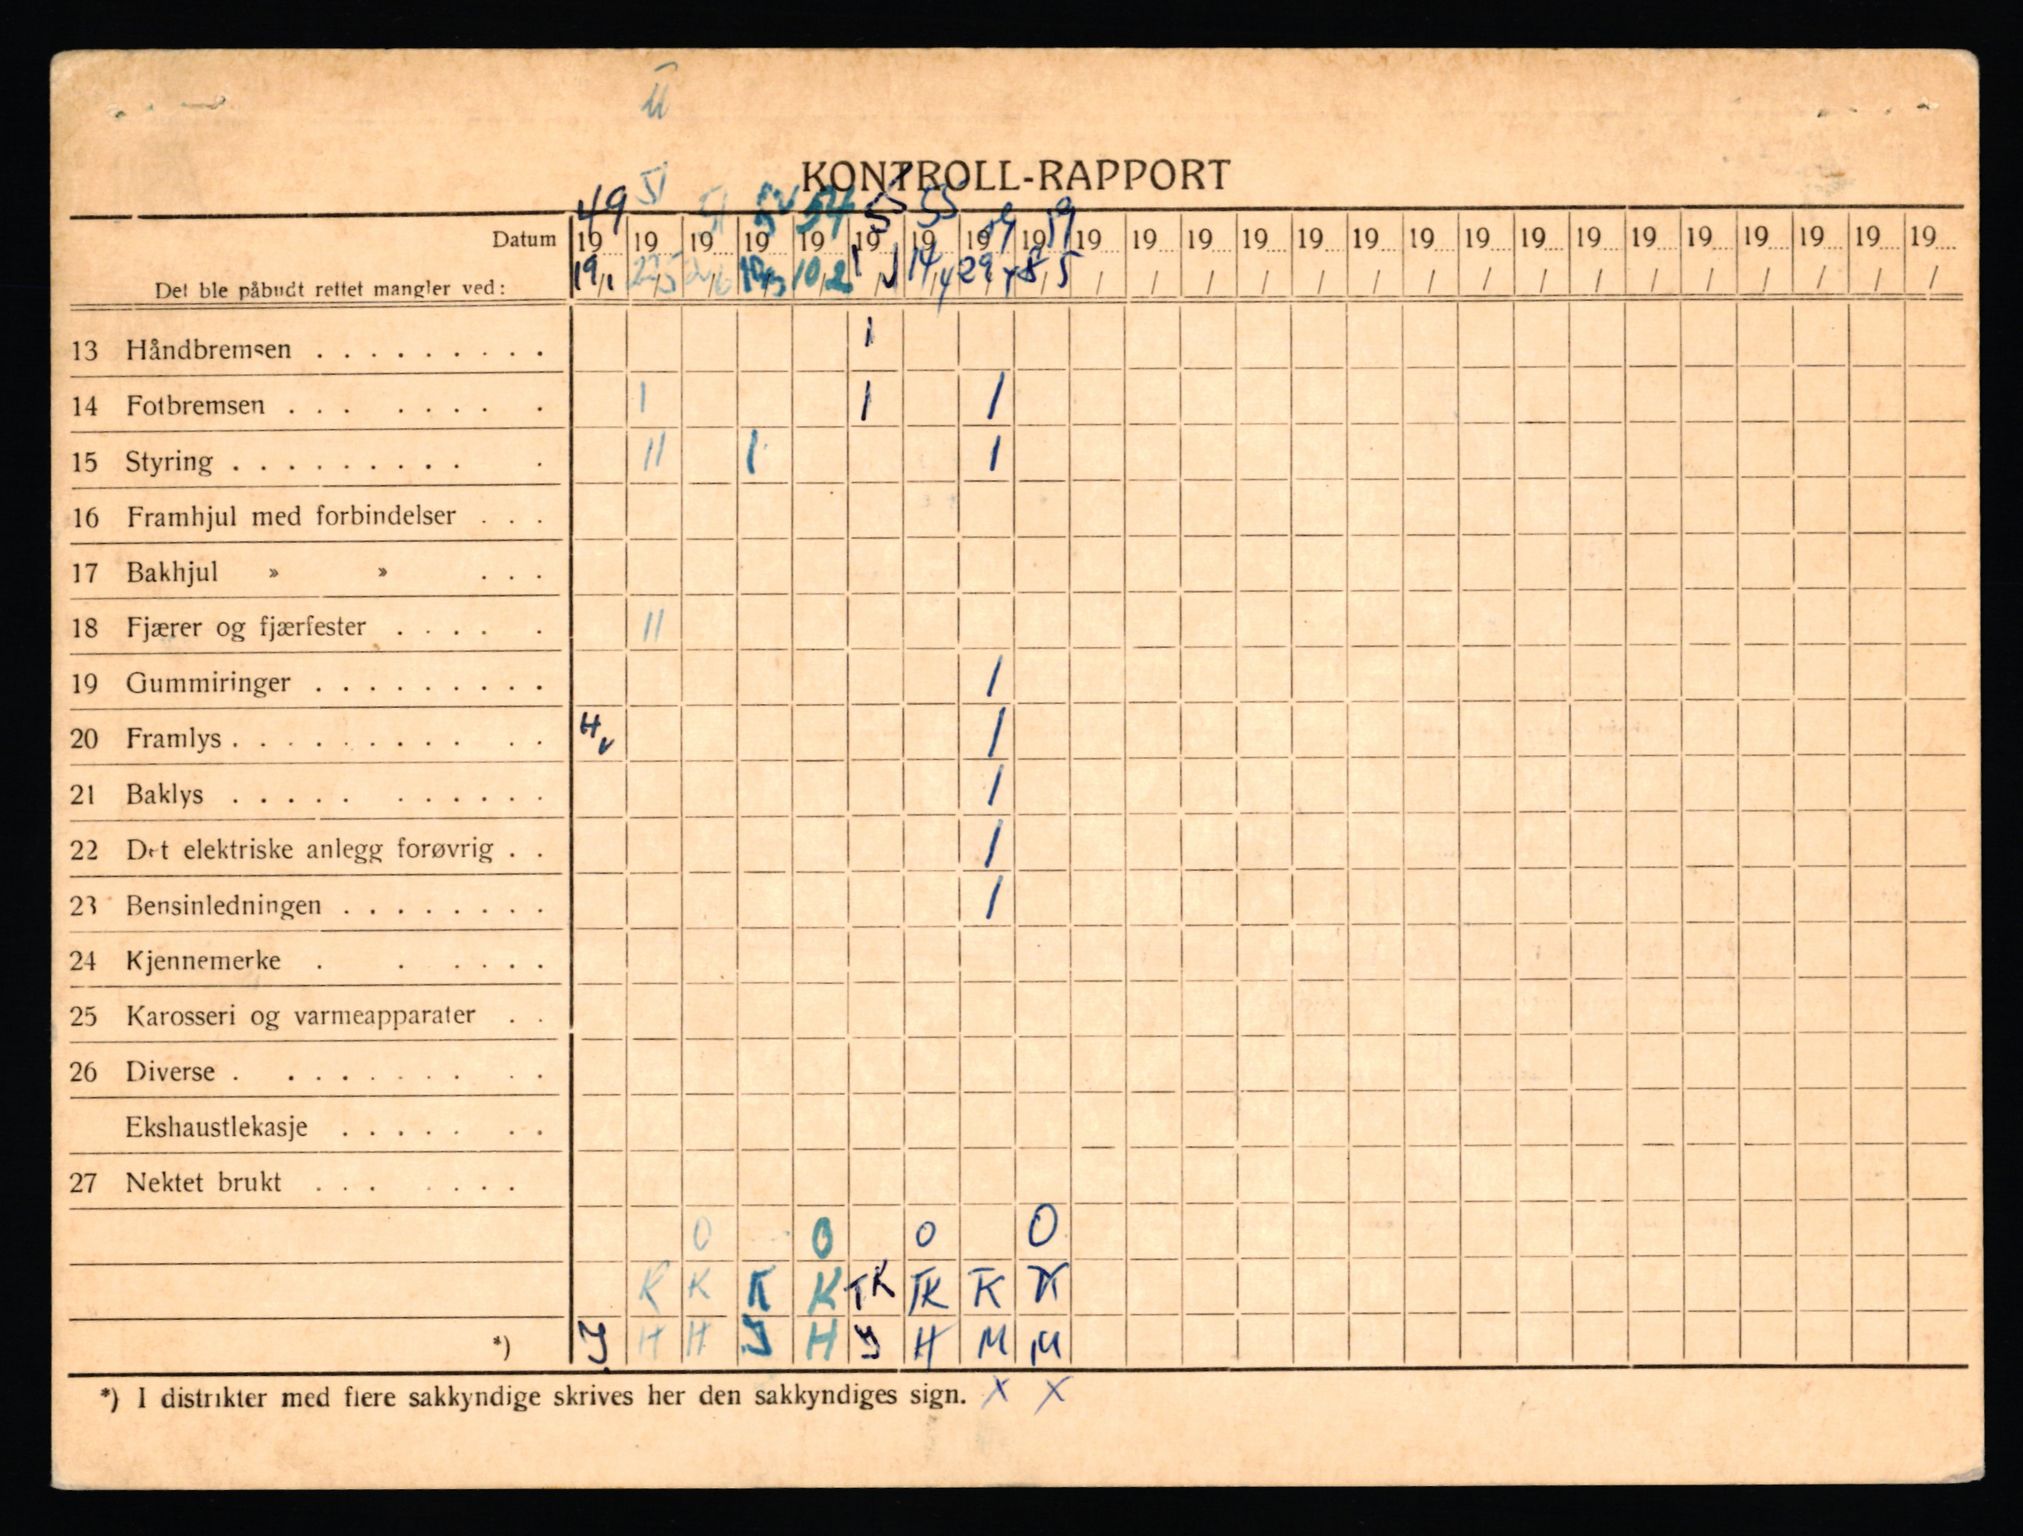 II
KONTROLL-RAPPORT
49 51 51 52 54 55 55 59 59
Datum 19 19 19 19 19 19 19 19 19 19 19 19 19 19 19 19 19 19 19 19 19 19 19 19 19
Det ble påbudt rettet mangler ved: 19/1 22/5 2/6 10/2 14/4 8/5 / / / / / / / / / / / / / / / /
13 Håndbremsen 1
14 Fotbremsen 1 1 1
15 Styring 11 1 1
16 Framhjul med forbindelser
17 Bakhjul » »
18 Fjærer og fjærfester 11
19 Gummiringer 1
20 Framlys H v 1
21 Baklys 1
22 Det elektriske anlegg forøvrig 1
23 Bensinledningen 1
24 Kjennemerke
25 Karosseri og varmeapparater
26 Diverse
Ekshaustlekasje
27 Nektet brukt
0 0 0 0
K K K K TK TK K K
*) J H H J H J H M M
*) I distrikter med flere sakkyndige skrives her den sakkyndiges sign. x x